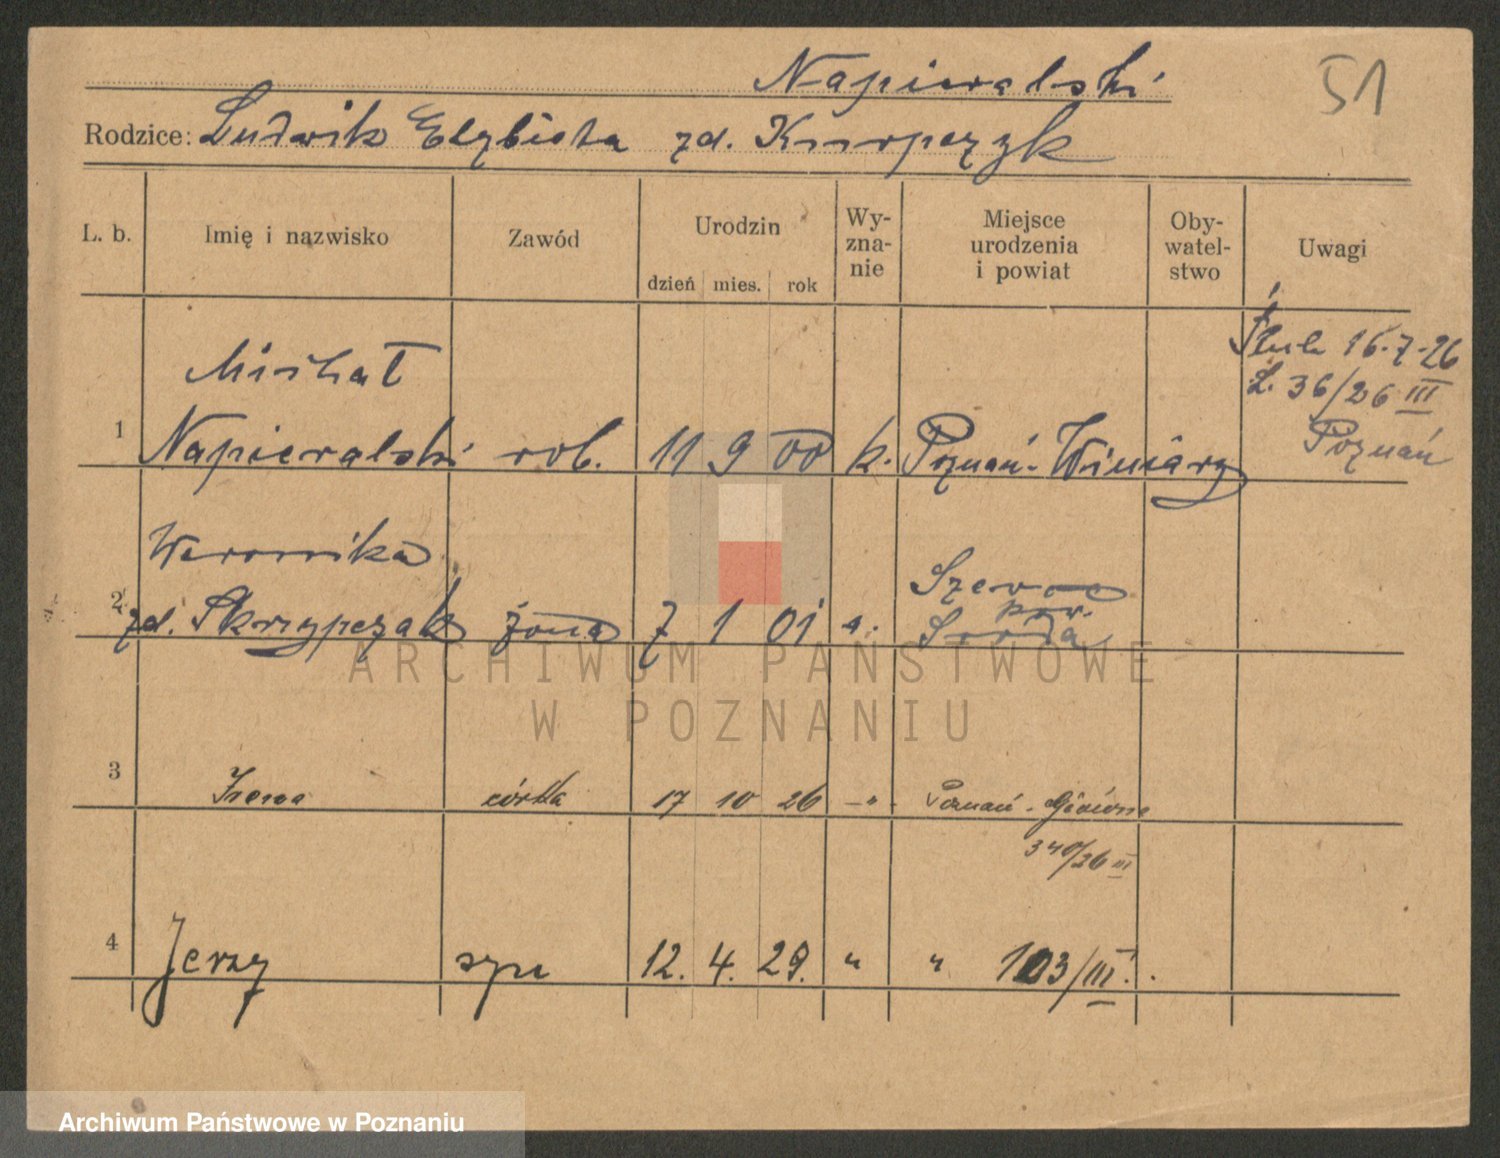 Napieralski
51
Rodzice: Ludwik Elzbieta zd.
L. b. Imię i nazwisko Zawód Urodzin Wy-zna-nie Miejsce urodzenia i powiat Oby-watel-stwo Uwagi
dzień mies. rok
Ślub 16.7.26
L. 36/26 III
Poznań
Michał
1 Napieralski rob. 11 9 00 k. Poznań-Winiary
Weronika
2 zd. Skrzypczak żona 7 1 01 pow.
Środa
ARCHIWUM PAŃSTWOWE
W POZNANIU
3 Irena córka 17 10 26 -"- Poznań-Główna
340/26 III
4 Jerzy syn 12. 4. 29. " " 103/III.
Archiwum Państwowe w Poznaniu